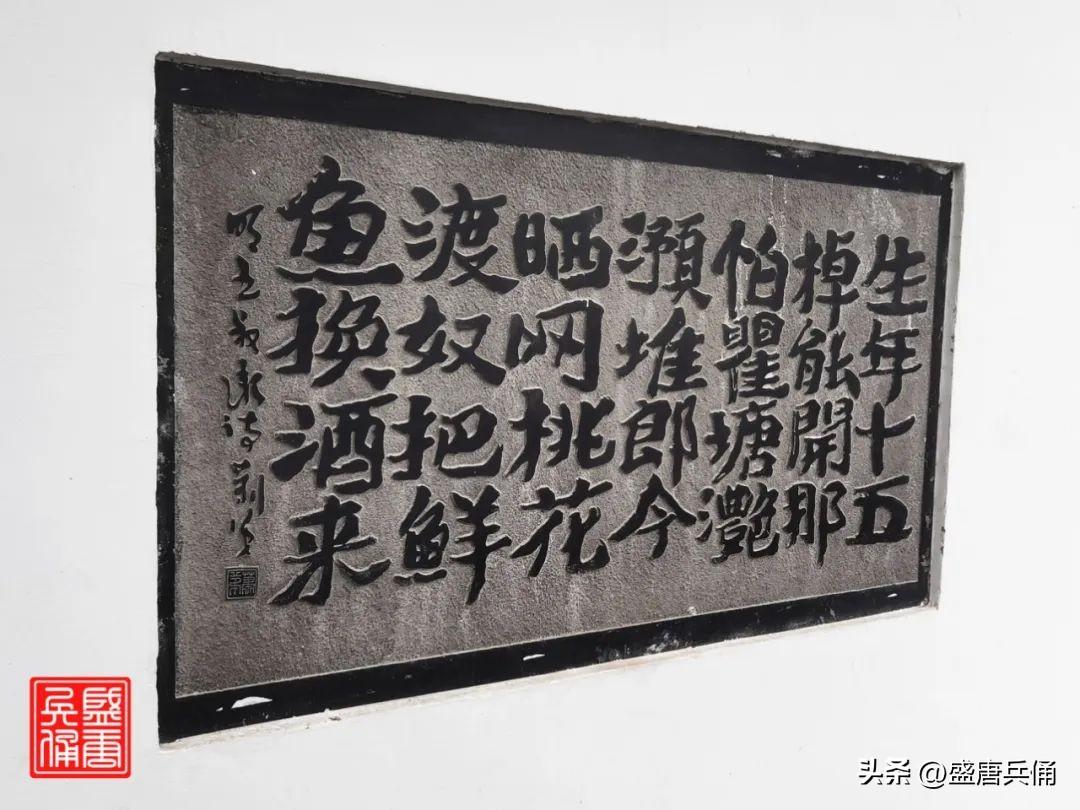 生年十五
棹能開那
怕瞿塘灔
澦堆郎今
晒网桃花
渡奴把鮮
鱼换酒来
明王叔承诗
盛唐
兵俑
头条 @盛唐兵俑